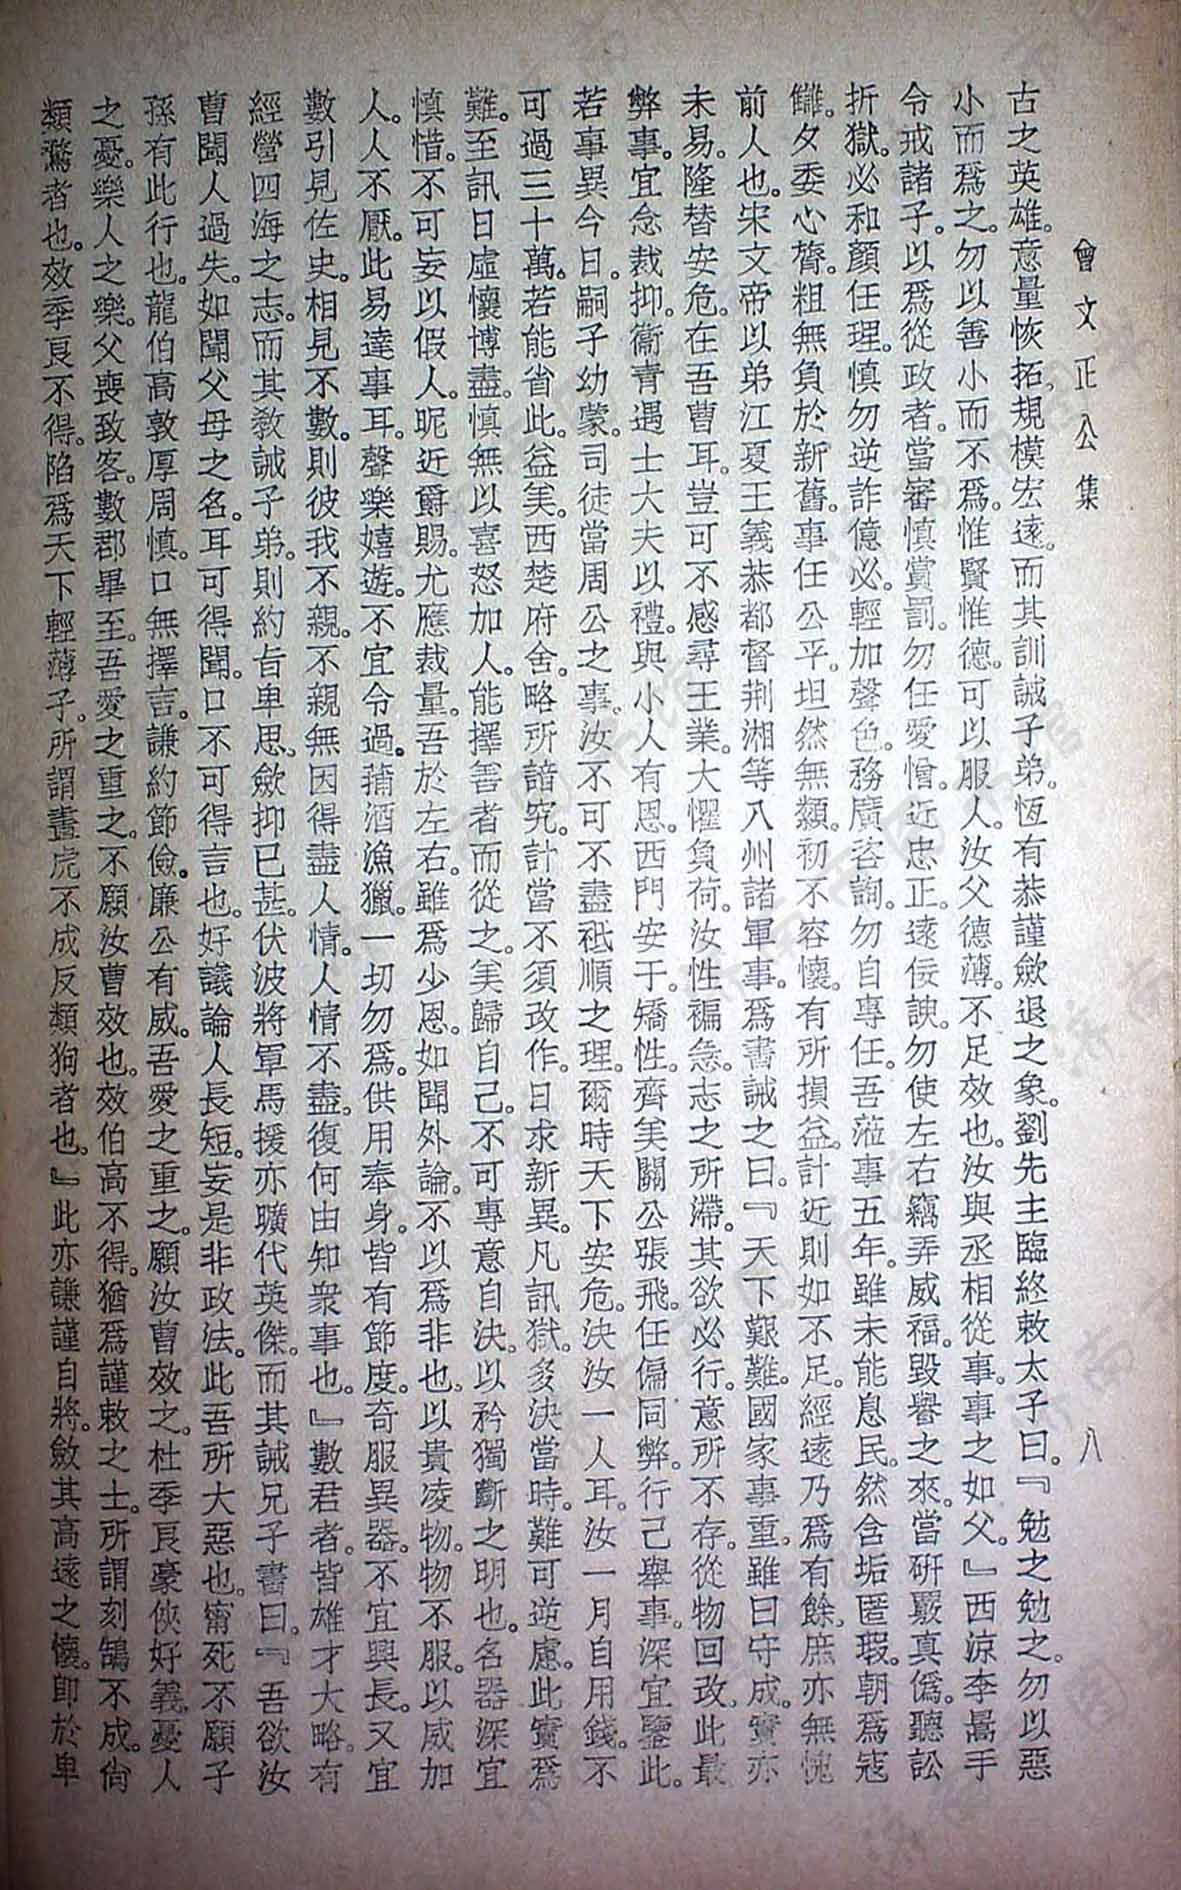 曾文正公集
八
古之英雄。意量恢拓。規模宏遠。而其訓誡子弟。恆有恭謹斂退之象。劉先主臨終敕太子曰。『勉之勉之。勿以惡
小而爲之。勿以善小而不爲。惟賢惟德。可以服人。汝父德薄。不足效也。汝與丞相從事。事之如父。』西涼李暠手
令戒諸子。以爲從政者。當審慎賞罰。勿任愛憎。近忠正。遠佞諛。勿使左右竊弄威福。毀譽之來。當研覈真僞。聽訟
折獄。必和顏任理。慎勿逆詐億必。輕加聲色。務廣咨詢。勿自專任。吾涖事五年。雖未能息民。然含垢匿瑕。朝爲寇
讎。夕委心膂。粗無負於新舊。事任公平。坦然無纇。初不容懷。有所損益。計近則如不足。經遠乃爲有餘。庶亦無愧
前人也。宋文帝以弟江夏王義恭都督荆湘等八州諸軍事。爲書誡之曰。『天下艱難。國家事重。雖曰守成。實亦
未易。隆替安危。在吾曹耳。豈可不感尋王業。大懼負荷。汝性褊急。志之所滯。其欲必行。意所不存。從物回改。此最
弊事。宜念裁抑。衞青遇士大夫以禮。與小人有恩。西門安于。矯性齊美。關公張飛。任偏同弊。行己舉事。深宜鑒此。
若事異今日。嗣子幼蒙。司徒當周公之事。汝不可不盡祗順之理。爾時天下安危。決汝一人耳。汝一月自用錢。不
可過三十萬。若能省此。益美。西楚府舍。略所諳究。計當不須改作。日求新異。凡訊獄。多決當時。難可逆慮。此實爲
難。至訊日虛懷博盡。慎無以喜怒加人。能擇善者而從之。美歸自己。不可專意自決。以矜獨斷之明也。名器深宜
慎惜。不可妄以假人。昵近爵賜。尤應裁量。吾於左右。雖爲少恩。如聞外論。不以爲非也。以貴凌物。物不服。以威加
人。人不厭。此易達事耳。聲樂嬉遊。不宜令過。蒱酒漁獵。一切勿爲。供用奉身。皆有節度。奇服異器。不宜興長。又宜
數引見佐史。相見不數。則彼我不親。不親無因得盡人情。人情不盡。復何由知衆事也。』數君者。皆雄才大略。有
經營四海之志。而其教誡子弟。則約旨卑思。斂抑已甚。伏波將軍馬援亦曠代英傑。而其誡兄子書曰。『吾欲汝
曹聞人過失。如聞父母之名。耳可得聞。口不可得言也。好議論人長短。妄是非政法。此吾所大惡也。甯死不願子
孫有此行也。龍伯高敦厚周慎。口無擇言。謙約節儉。廉公有威。吾愛之重之。願汝曹效之。杜季良豪俠好義。憂人
之憂。樂人之樂。父喪致客。數郡畢至。吾愛之重之。不願汝曹效也。效伯高不得。猶爲謹敕之士。所謂刻鵠不成。尙
類鶩者也。效季良不得。陷爲天下輕薄子。所謂畫虎不成反類狗者也。』此亦謙謹自將。斂其高遠之懷。卽於卑